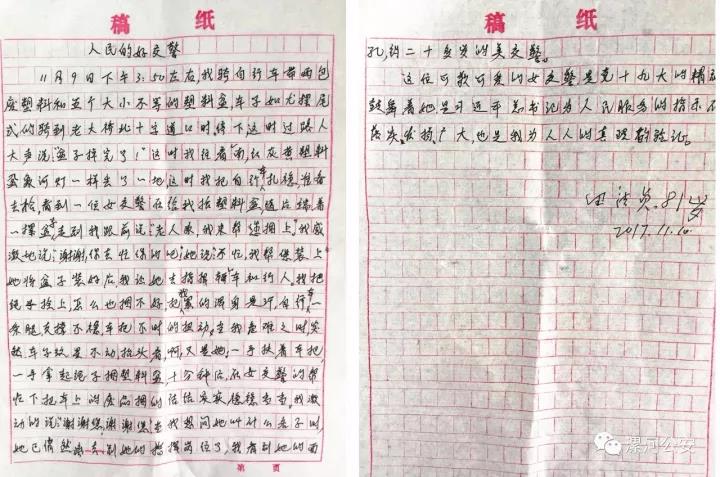 稿 纸
人民的好交警
11月9日下午3:50左右,我骑自行车带两包
废塑料和五个大小不等的塑料盆,车子如尤摆尾
式的骑到老大待北十字道口时停下这时过路人
大声说:"盆子掉完了!"这时我往看南,红灰黄塑料
盆象河灯一样去了一地,这时我把自行车扎稳,准备
去捡,看到一位女交警在给我拾塑料盆,这片摞着
一摞盆,走到我跟前说:"老人家我来帮您捆上"。我感
激地说:"谢谢,你去忙你的吧"她说:"不忙,我帮您装上"
她将盆子装好后我让她去指挥辆车和行人。我把
绳子拴上,怎么也捆不好把我累的浑身是汗,自行车一
条腿支撑不稳,车把不时的扭动。在我危难之时突
然车子纹是不动抬头看,啊,又是她,一手扶着车把,
一手拿起绳子捆塑料盆,十分钟后,在女交警的帮
忙下把车上的废品捆的结结实实,稳稳当当。我激
动的说:"谢谢您,谢谢您"当我想问她叫什么名子时,
她已悄然离去到她的指挥岗位了,我看到她的面
第 页
稿 纸
孔,约二十多岁的美交警。
这位可敬可爱的女交警是党十九大的精
鼓舞着她是习近平总书记为人民服务的指示
发扬广大,也是我为人人的真理的验证。
81岁
2017.11.10
漯河公安